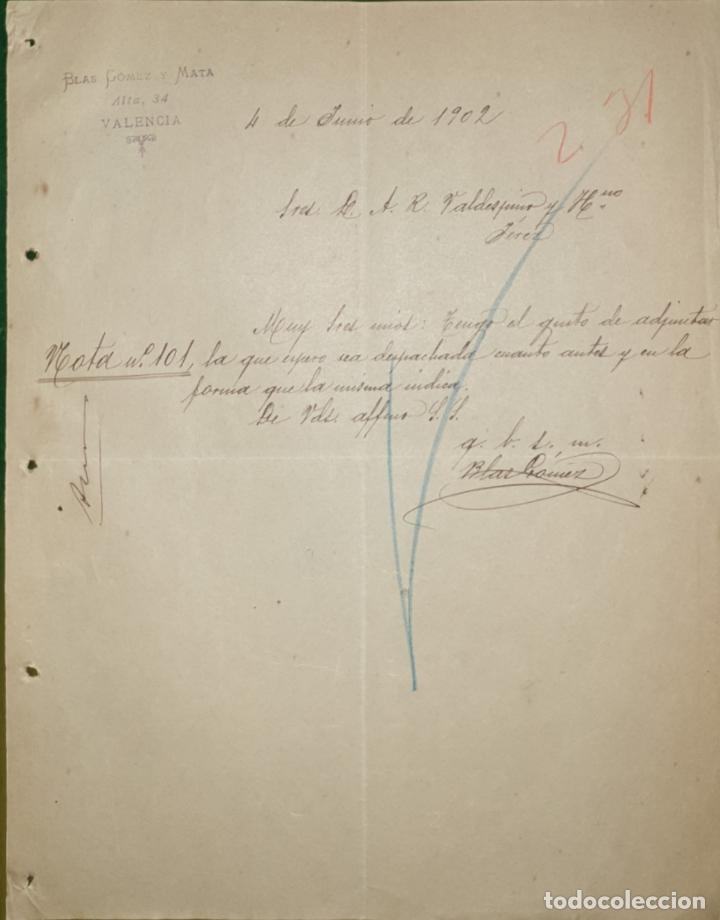 BLAS GÓMEZ Y MATA
Alta, 34
VALENCIA
4 de Junio de 1902
2 31
Sres. D. A. R. Valdespino y Hno
Jeréz
Muy Sres mios: Tengo el gusto de adjuntar
Nota nº 101, la que espero sea despachada cuanto antes y en la
forma que la misma indica.
De Vds. affmo S. S.
q. b. s. m.
Blas Gómez
todocoleccion